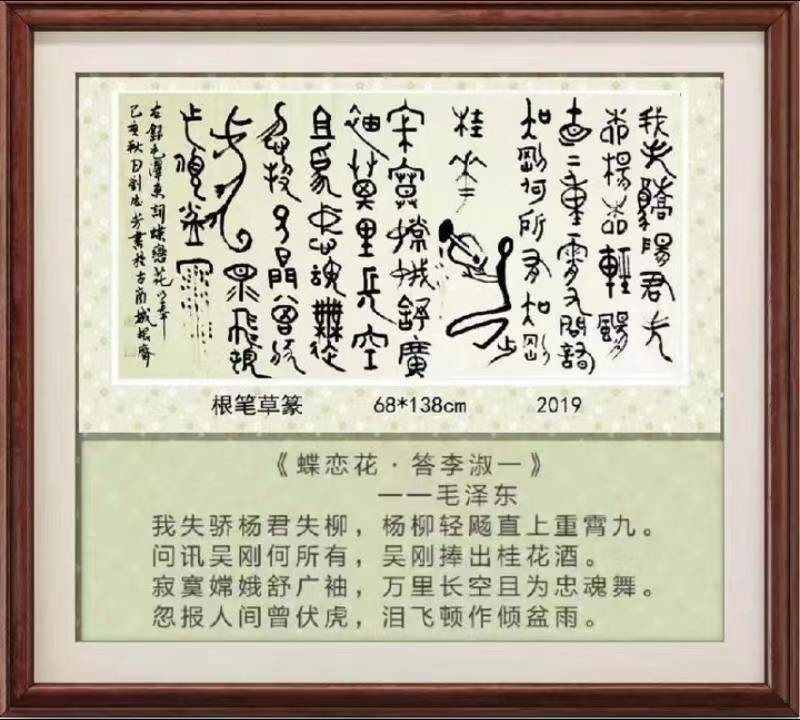 我失驕陽君失
柳楊柳輕颺
直上重霄九問訊
吳剛何所有吳剛
捧出
桂花
寂寞嫦娥舒廣
袖萬里長空
且為忠魂舞
忽报人間曾伏
虎淚飛
作傾盆雨
右錄毛澤東詞蝶戀花
己亥秋月劉志芳書於古商城根齋
根笔草篆 68*138cm 2019
《蝶恋花·答李淑一》
——毛泽东
我失骄杨君失柳，杨柳轻飏直上重霄九。
问讯吴刚何所有，吴刚捧出桂花酒。
寂寞嫦娥舒广袖，万里长空且为忠魂舞。
忽报人间曾伏虎，泪飞顿作倾盆雨。